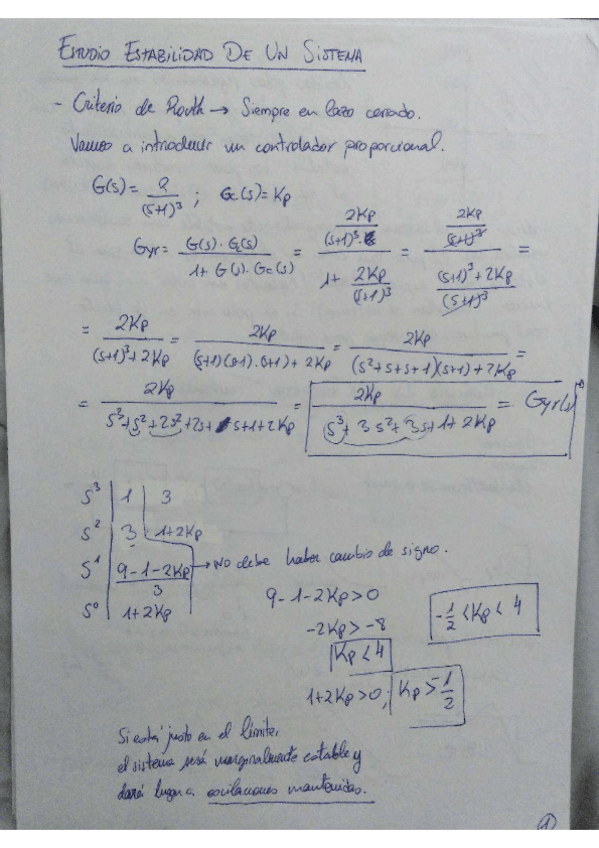 ESTUDIO ESTABILIDAD DE UN SISTEMA
- Criterio de Routh → Siempre en lazo cerrado.
Vamos a introducir un controlador proporcional.
G(s) = 2/(s+1)^3 ; Gc(s) = Kp
Gyr = G(s)·Gc(s)/(1+G(s)·Gc(s)) = (2Kp/(s+1)^3)/(1+2Kp/(s+1)^3) = (2Kp/(s+1)^3)/(((s+1)^3+2Kp)/(s+1)^3) =
= 2Kp/((s+1)^3+2Kp) = 2Kp/((s+1)(s+1)·(s+1)+2Kp) = 2Kp/((s^2+s+s+1)(s+1)+2Kp) =
= 2Kp/(s^3+s^2+2s^2+2s+s+1+2Kp) = 2Kp/(s^3+3s^2+3s+1+2Kp) = Gyr(s)
s^3 | 1 | 3
s^2 | 3 | 1+2Kp
s^1 | (9-1-2Kp)/3 → No debe haber cambio de signo.
s^0 | 1+2Kp
9-1-2Kp>0
-2Kp>-8
Kp<4
1+2Kp>0; Kp>-1/2
-1/2<Kp<4
Si está justo en el límite,
el sistema será marginalmente estable y
dará lugar a oscilaciones mantenidas.
1